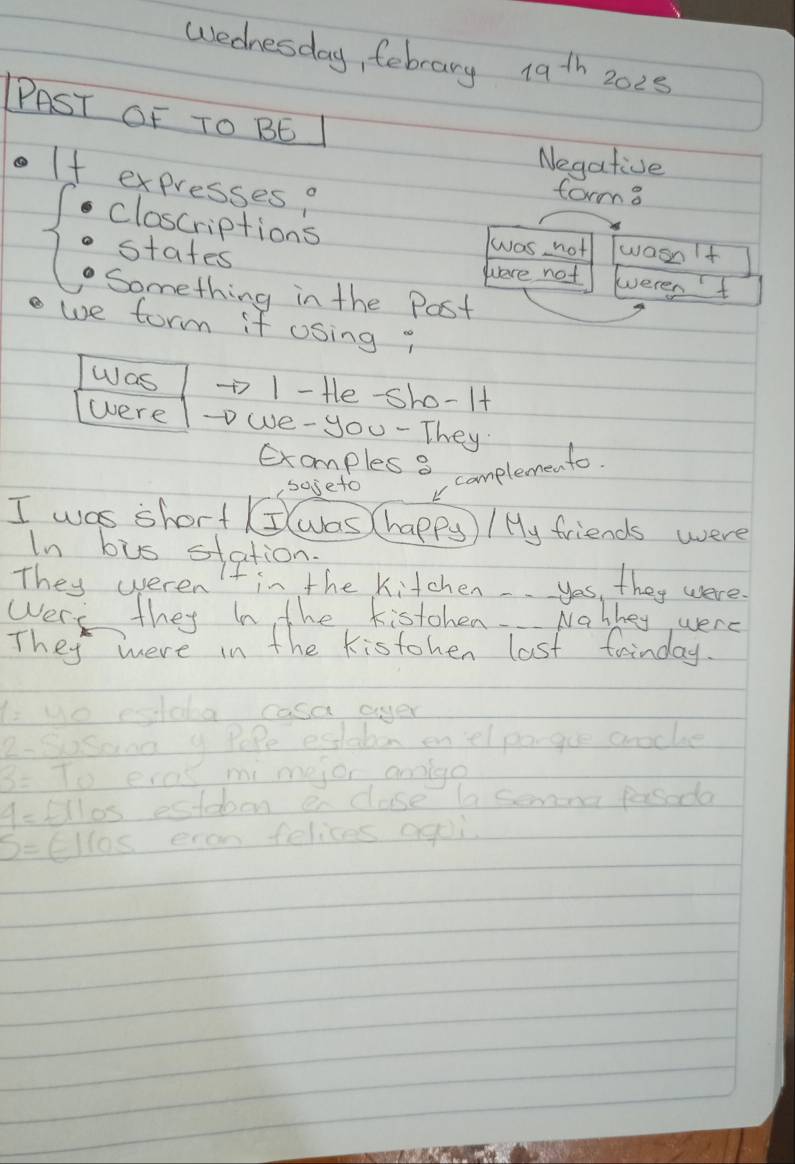 Wednesday, febrary 19th 2025
PAST OF TO BE
• It expresses:
• Closcriptions
• States
• Something in the Past
Negative
form:
was not wasn't
were not weren't
• we form it using:
was → I - He - Sho - It
were → we - you - They.
Examples:
sujeto complemento.
I was short / I was happy / My friends were
In bus station.
They weren't in the Kitchen - - - yes, they were.
Were they in the kistohen - - - Nahhey were
They were in the kistohen last frinday.
1= yo estaba casa ayer
2- Susana y Pepe estaban en el parque anoche
3= Tu eras mi mejor amigo
4= Ellos estaban en clase la semana pasada
5= Ellos eran felices aqui.